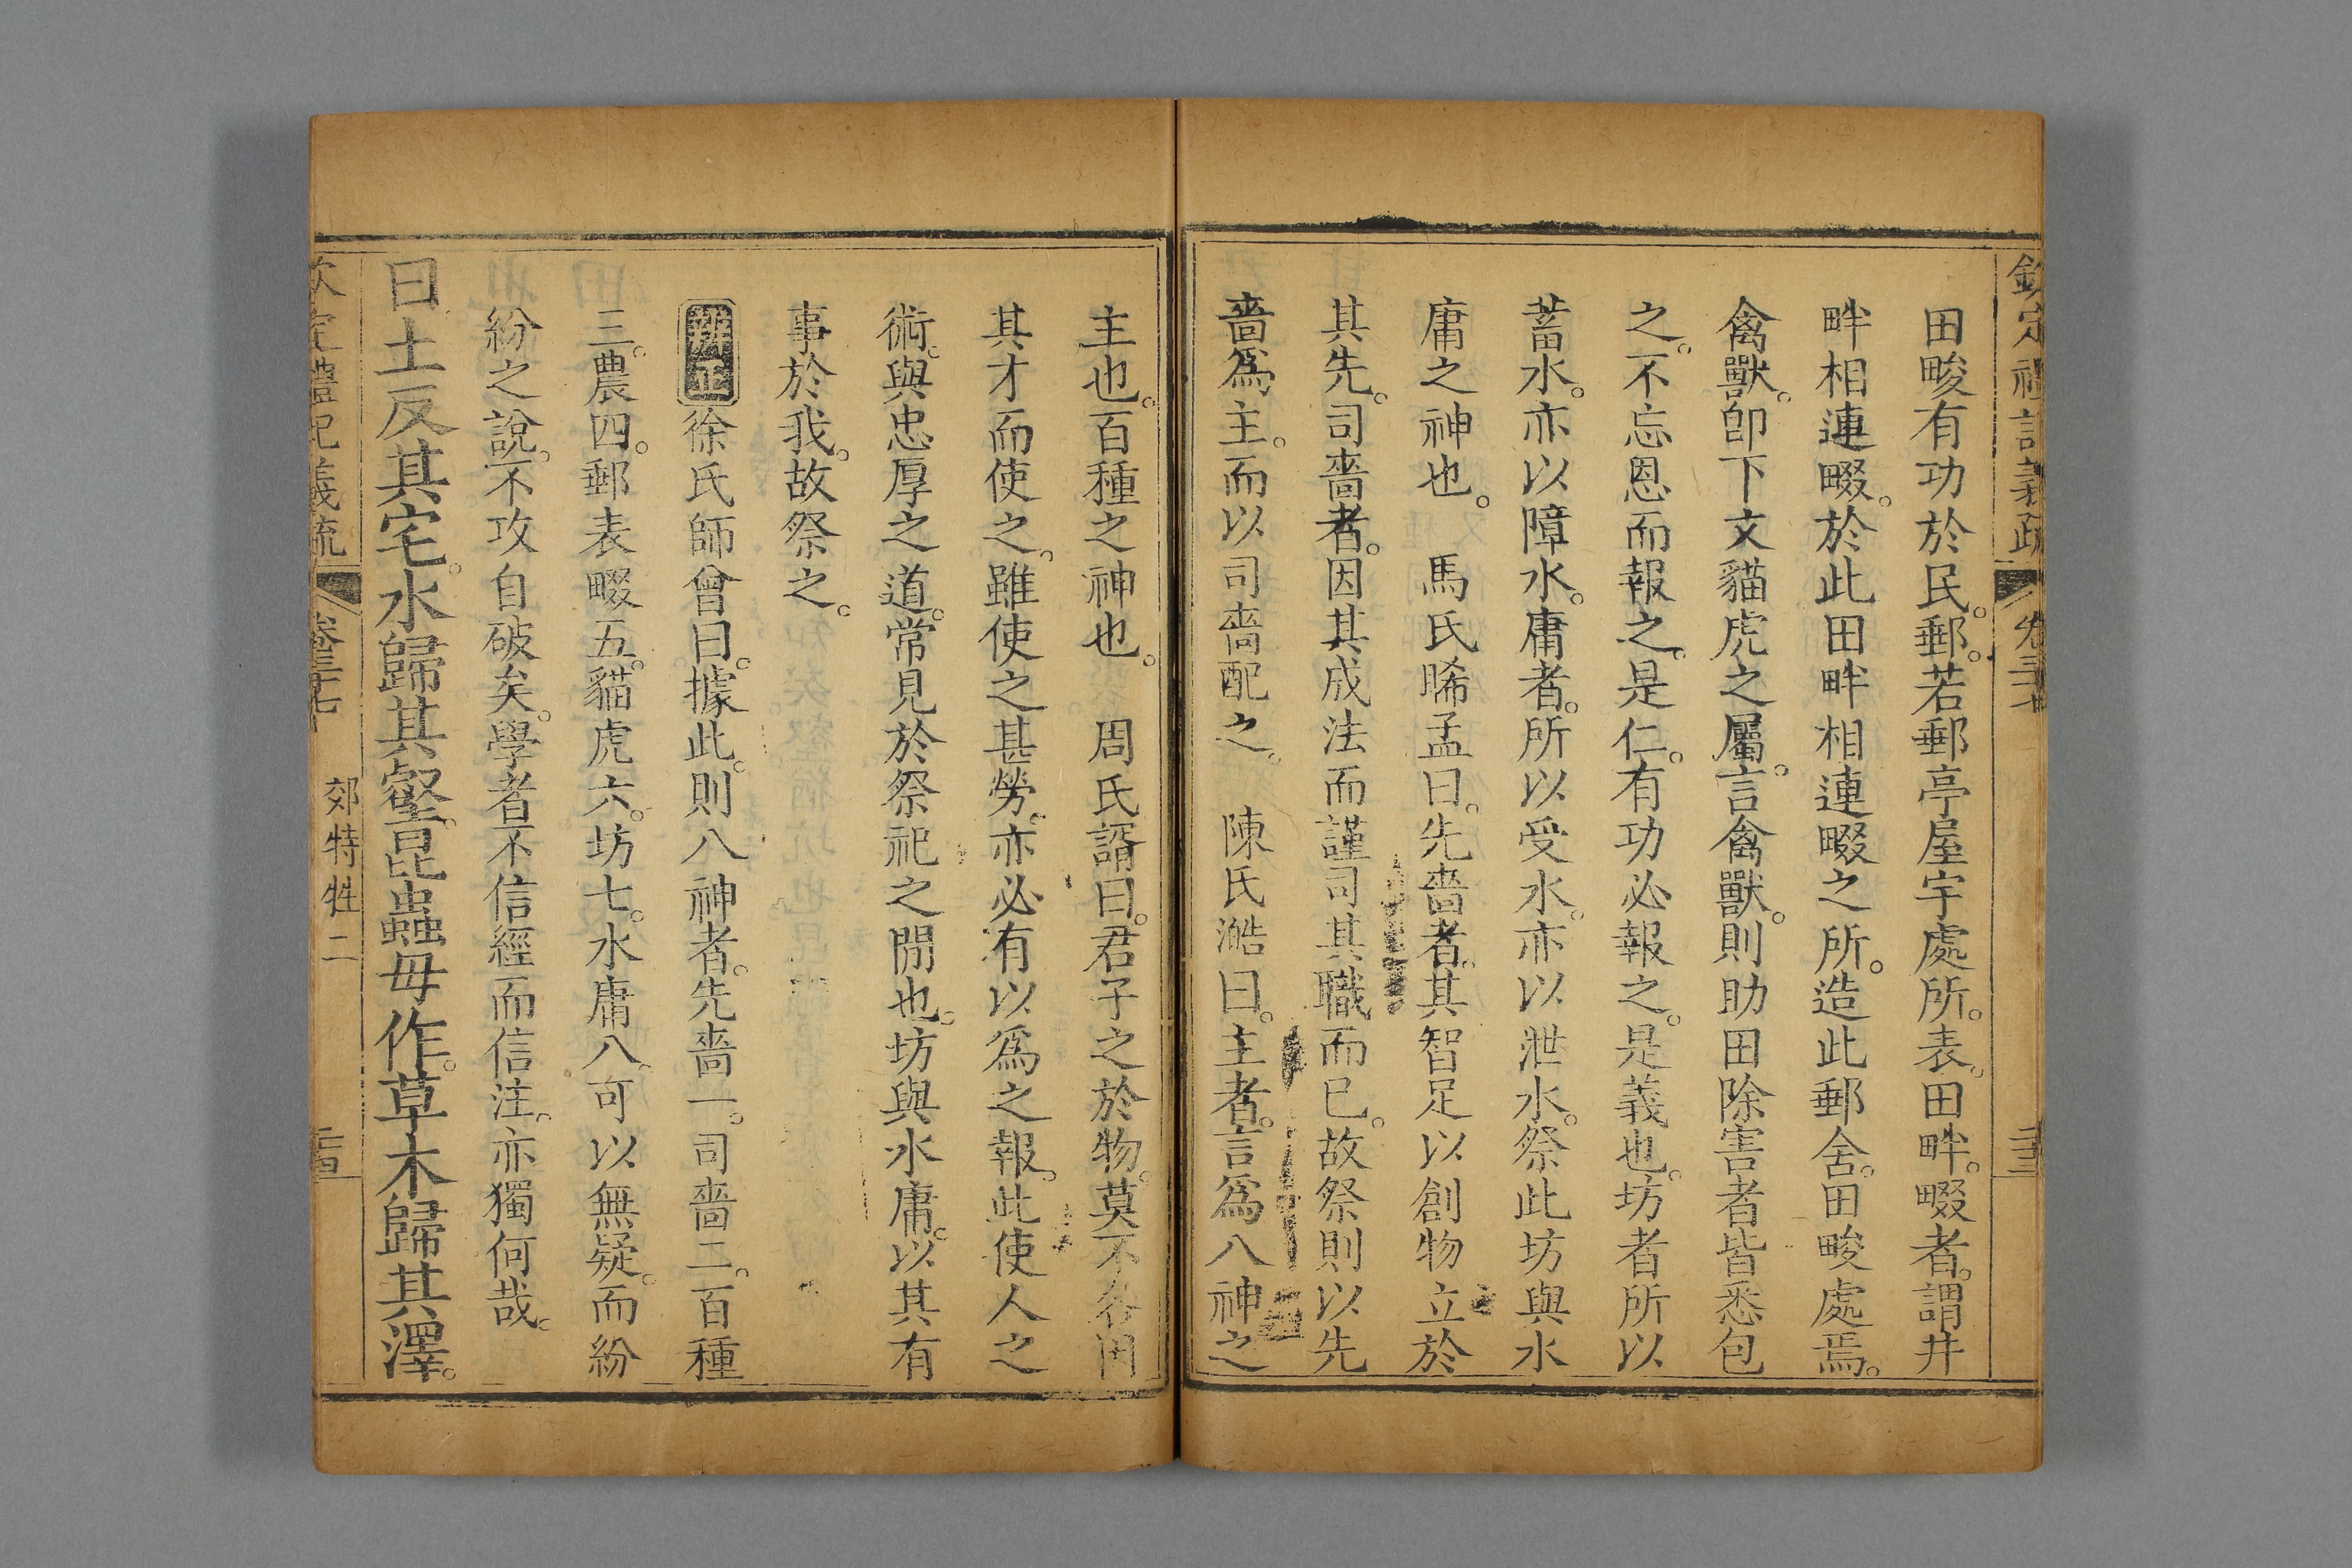 欽定禮記義疏 卷三十七 三十三
田畯有功於民。郵。若郵亭屋宇處所。表。田畔。畷者。謂井
畔相連畷。於此田畔相連畷之所。造此郵舍。田畯處焉。
禽獸。卽下文貓虎之屬。言禽獸。則助田除害者皆悉包
之。不忘恩而報之。是仁。有功必報之。是義也。坊者所以
蓄水。亦以障水。庸者。所以受水。亦以泄水。祭此坊與水
庸之神也。 馬氏睎孟曰。先嗇者。其智足以創物立於
其先。司嗇者。因其成法而謹司其職而已。故祭則以先
嗇爲主。而以司嗇配之。 陳氏澔曰。主者。言爲八神之
主也。百種之神也。 周氏諝曰。君子之於物。莫不各因
其才而使之。雖使之甚勞。亦必有以爲之報。此使人之
術。與忠厚之道。常見於祭祀之閒也。坊與水庸。以其有
事於我。故祭之。
辨正 徐氏師曾曰。據此。則八神者。先嗇一。司嗇二。百種
三。農四。郵表畷五。貓虎六。坊七。水庸八。可以無疑。而紛
紛之說。不攻自破矣。學者不信經而信注。亦獨何哉。
曰土反其宅。水歸其壑。昆蟲毋作。草木歸其澤。
欽定禮記義疏 卷三十七 郊特牲二